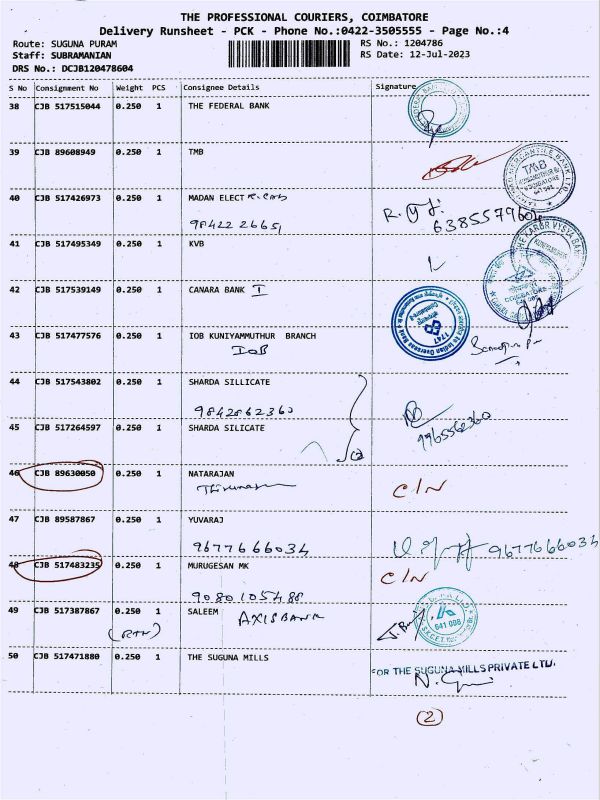 THE PROFESSIONAL COURIERS, COIMBATORE
Delivery Runsheet - PCK - Phone No.:0422-3505555 - Page No.:4
Route: SUGUNA PURAM RS No.: 1204786
Staff: SUBRAMANIAN RS Date: 12-Jul-2023
DRS No.: DCJB120478604
S No Consignment No Weight PCS Consignee Details Signature
38 CJB 517515044 0.250 1 THE FEDERAL BANK
39 CJB 89608949 0.250 1 TMB
TMB
40 CJB 517426973 0.250 1 MADAN ELECT
98422 26651 6385579604
41 CJB 517495349 0.250 1 KVB
42 CJB 517539149 0.250 1 CANARA BANK I
43 CJB 517477576 0.250 1 IOB KUNIYAMMUTHUR BRANCH
IOB
1747
44 CJB 517543802 0.250 1 SHARDA SILLICATE
9842862360
45 CJB 517264597 0.250 1 SHARDA SILICATE
9965562360
46 CJB 89630050 0.250 1 NATARAJAN
C/N
47 CJB 89587867 0.250 1 YUVARAJ
9677666034 9677666034
48 CJB 517483235 0.250 1 MURUGESAN MK C/N
9080105488
49 CJB 517387867 0.250 1 SALEEM AXIS BANK
(RTN) 641 008
50 CJB 517471880 0.250 1 THE SUGUNA MILLS
FOR THE SUGUNA MILLS PRIVATE LTD.
(2)